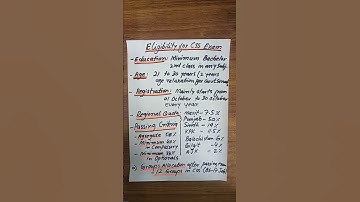 Eligibility for CSS Exam
- Education: Minimum Bachelor
2nd class in any Sub.
- Age: 21 to 30 years (2 years
age relaxation for Govt Servant
- Registration: Mainly starts from
01 October to 30 October
every years
- Regional Quota: Merit - 7.5 %
Punjab - 50 %
- Passing Criteria Sindh - 19 %
- Aggregate 50 % KPK - 11.5 %
- Minimum 40 % in Compulsory Balochistan 6 %
Gilgit - 4 %
- Minimum 33 % in Optionals AJK - 2 %
Groups Allocation after passing exam
12 Groups in CSS (BS-17 Job)